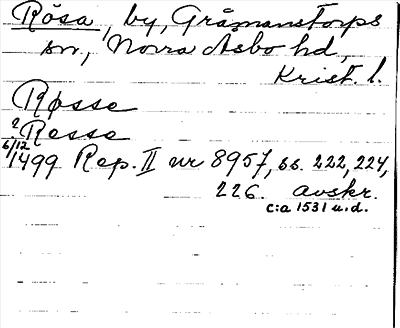 Rösa, by, Gråmanstorps
sn, Norra Åsbo hd,
Krist. l.
Røsse
? Resse
6/12 1499 Rep. II nr 8957, ss. 222, 224,
226. avskr.
c:a 1531 u.d.